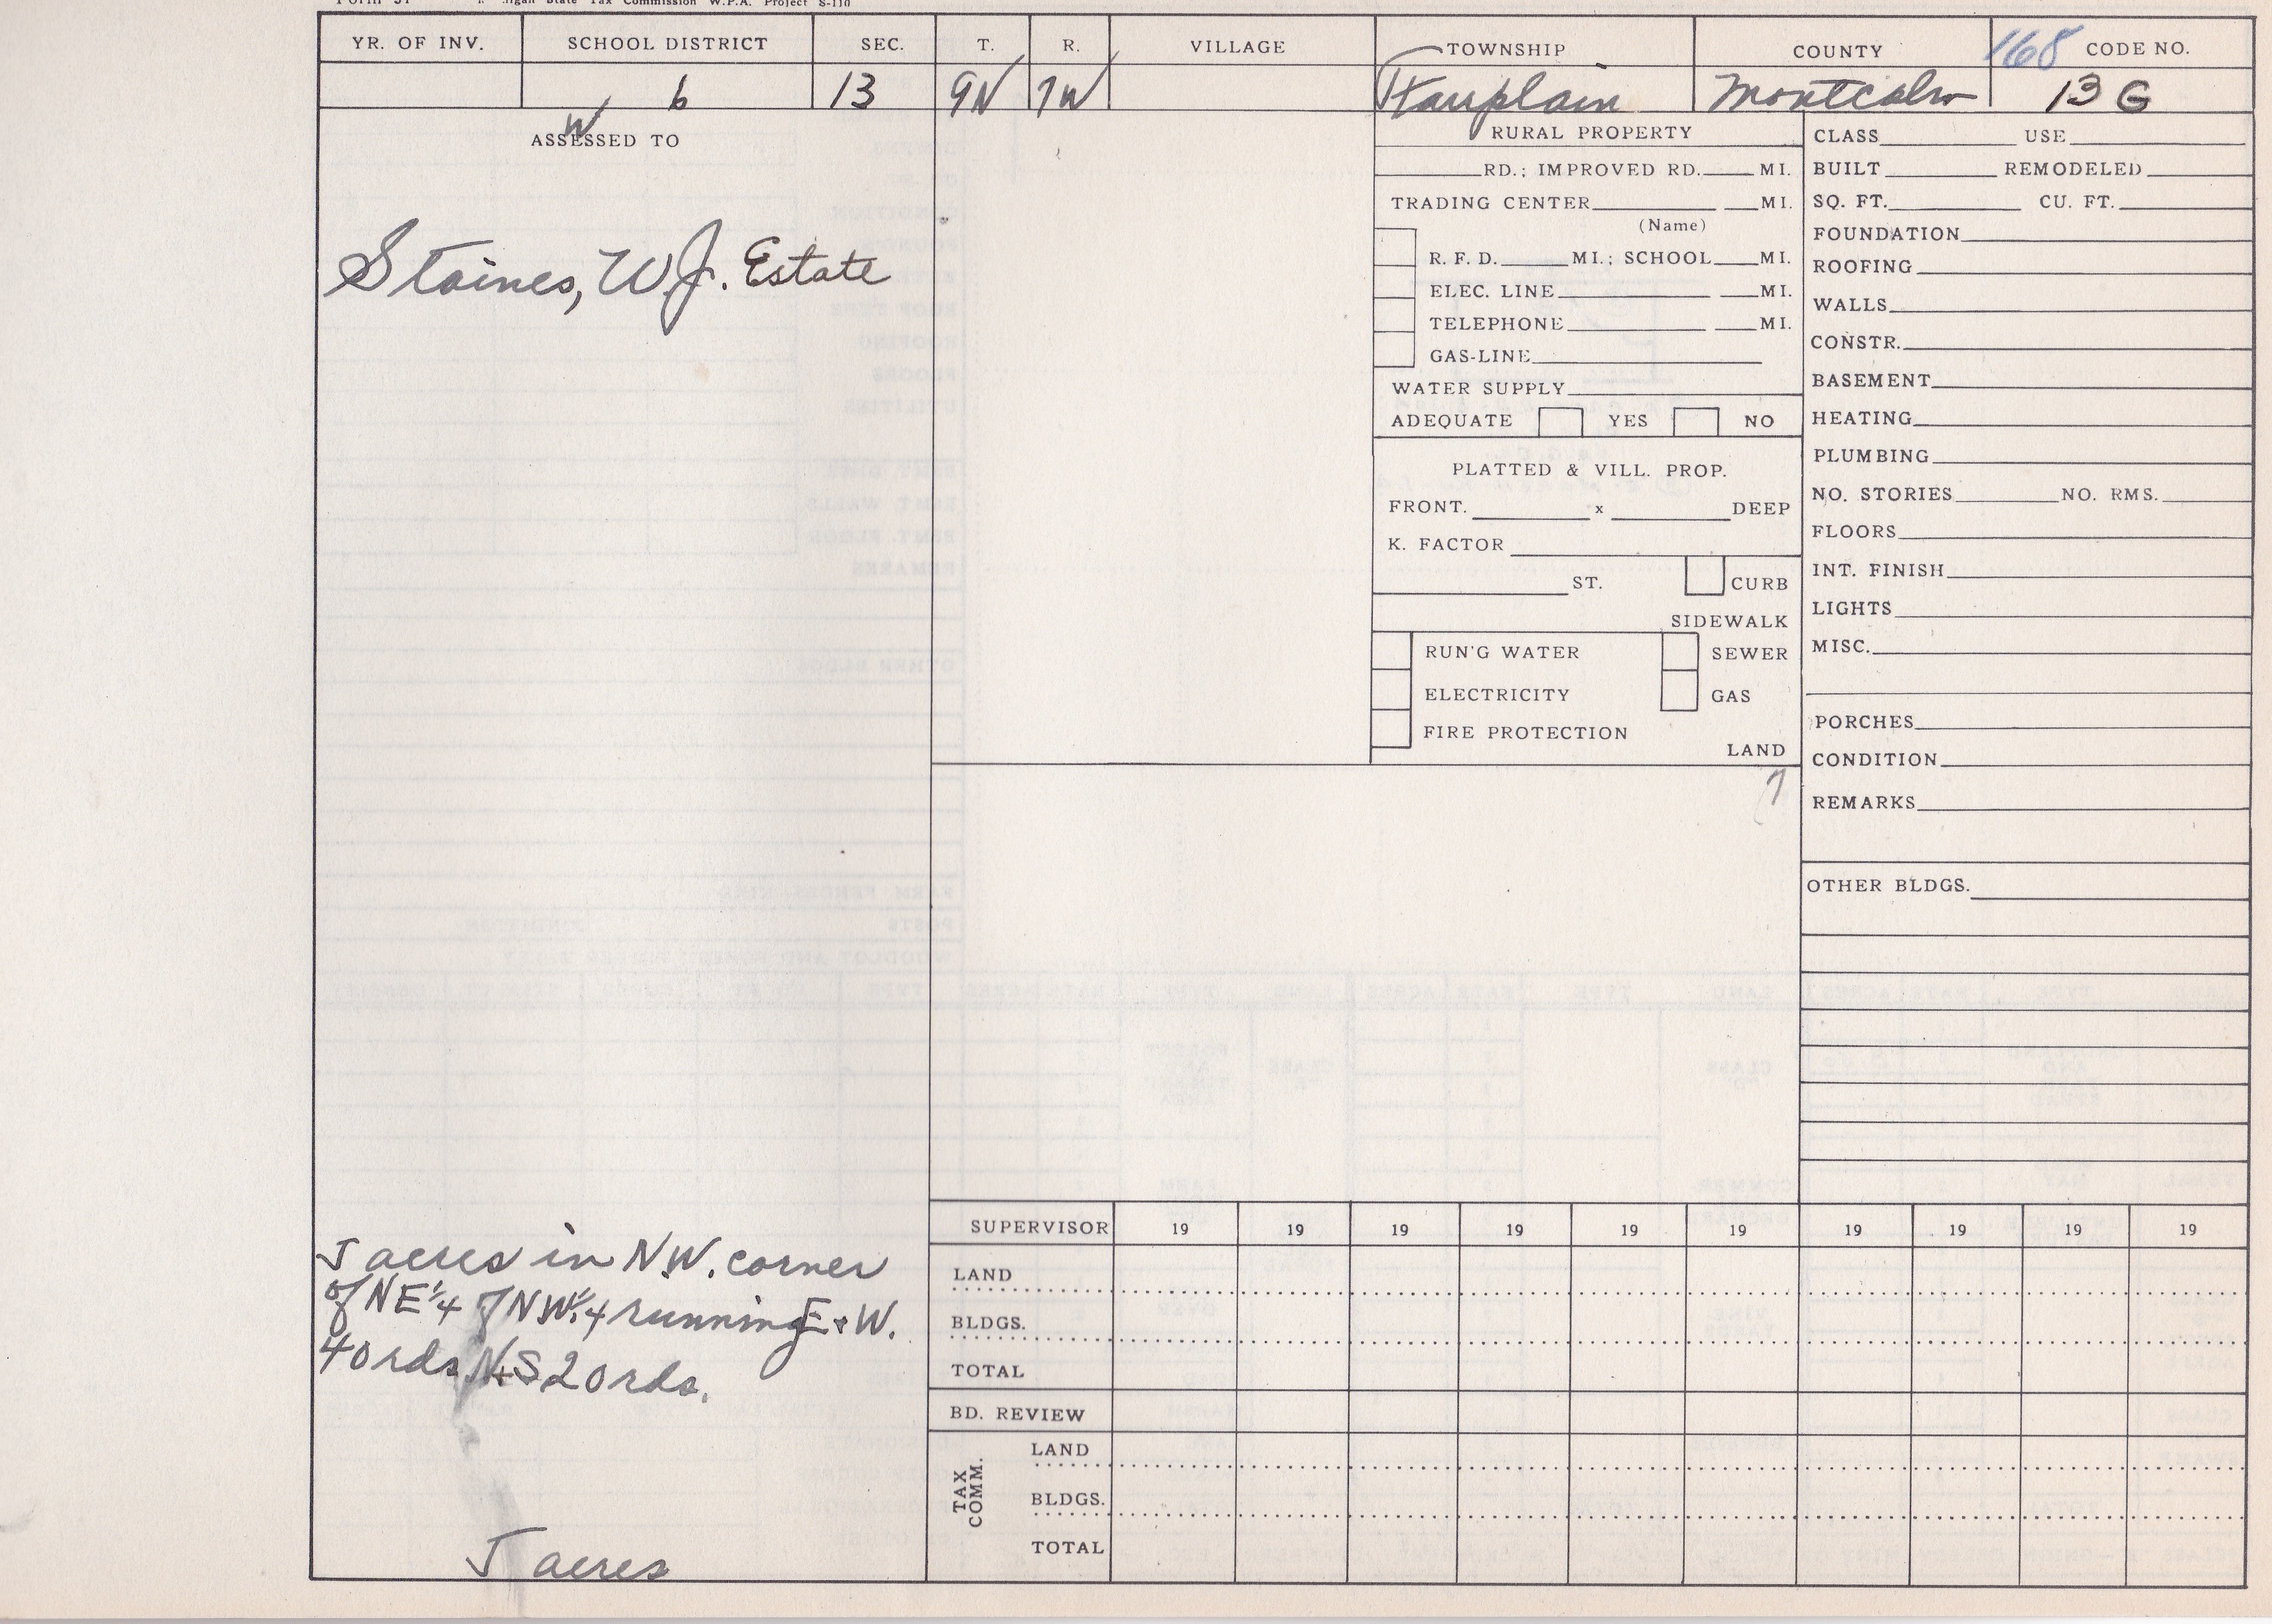 Form 31 Michigan State Tax Commission W.P.A. Project S-110
YR. OF INV. SCHOOL DISTRICT SEC. T. R. VILLAGE TOWNSHIP COUNTY 168 CODE NO.
6 13 9N 7W Fairplain Montcalm 13 G
W
ASSESSED TO
Staines, W.J. Estate
5 acres in N.W. corner
of NE 1/4 of NW 1/4 running E & W.
40 rds. N & S 20 rds.
5 acres
RURAL PROPERTY
RD.; IMPROVED RD. MI.
TRADING CENTER MI.
(Name)
R. F. D. MI.; SCHOOL MI.
ELEC. LINE MI.
TELEPHONE MI.
GAS-LINE
WATER SUPPLY
ADEQUATE YES NO
PLATTED & VILL. PROP.
FRONT. x DEEP
K. FACTOR
ST. CURB
SIDEWALK
RUN'G WATER SEWER
ELECTRICITY GAS
FIRE PROTECTION
LAND
7
CLASS USE
BUILT REMODELED
SQ. FT. CU. FT.
FOUNDATION
ROOFING
WALLS
CONSTR.
BASEMENT
HEATING
PLUMBING
NO. STORIES NO. RMS.
FLOORS
INT. FINISH
LIGHTS
MISC.
PORCHES
CONDITION
REMARKS
OTHER BLDGS.
SUPERVISOR 19 19 19 19 19 19 19 19 19 19
LAND
BLDGS.
TOTAL
BD. REVIEW
TAX COMM.
LAND
BLDGS.
TOTAL